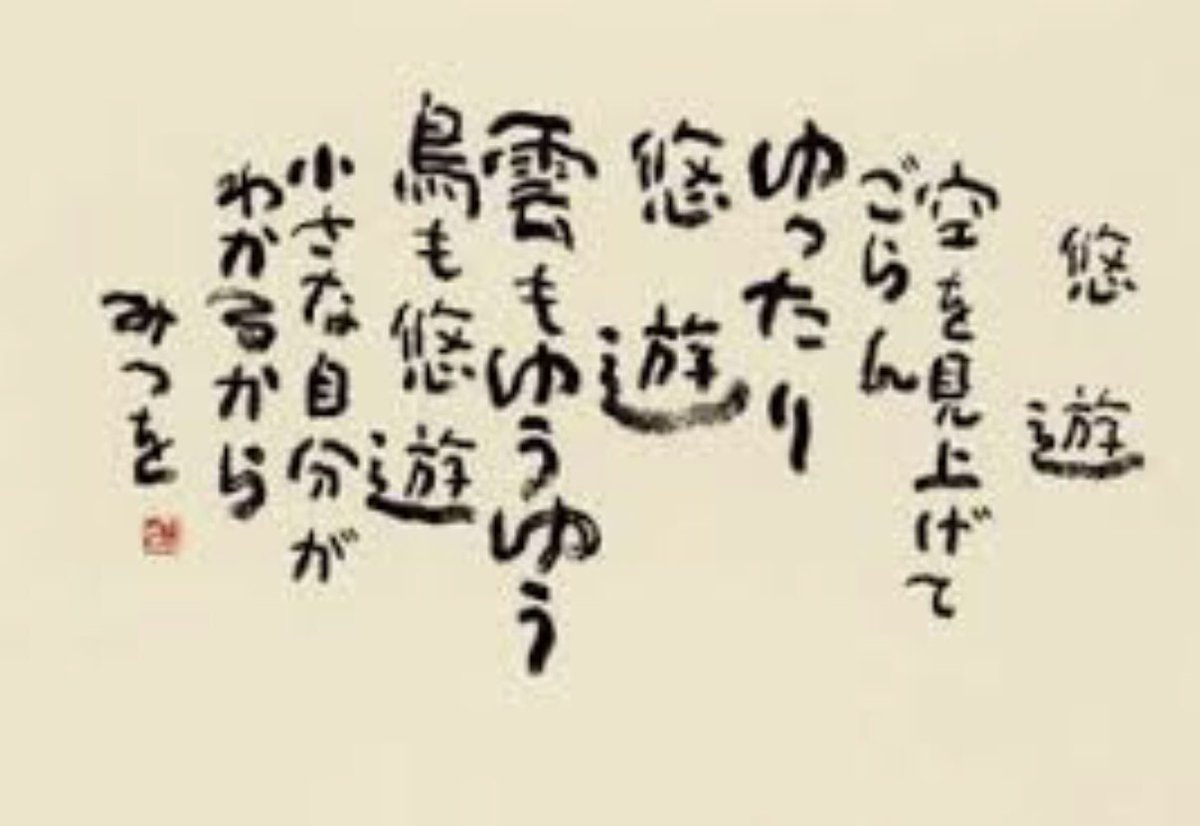 悠遊
空を見上げて
ごらん
ゆったり
悠遊
雲もゆうゆう
鳥も悠遊
小さな自分が
わかるから
みつを